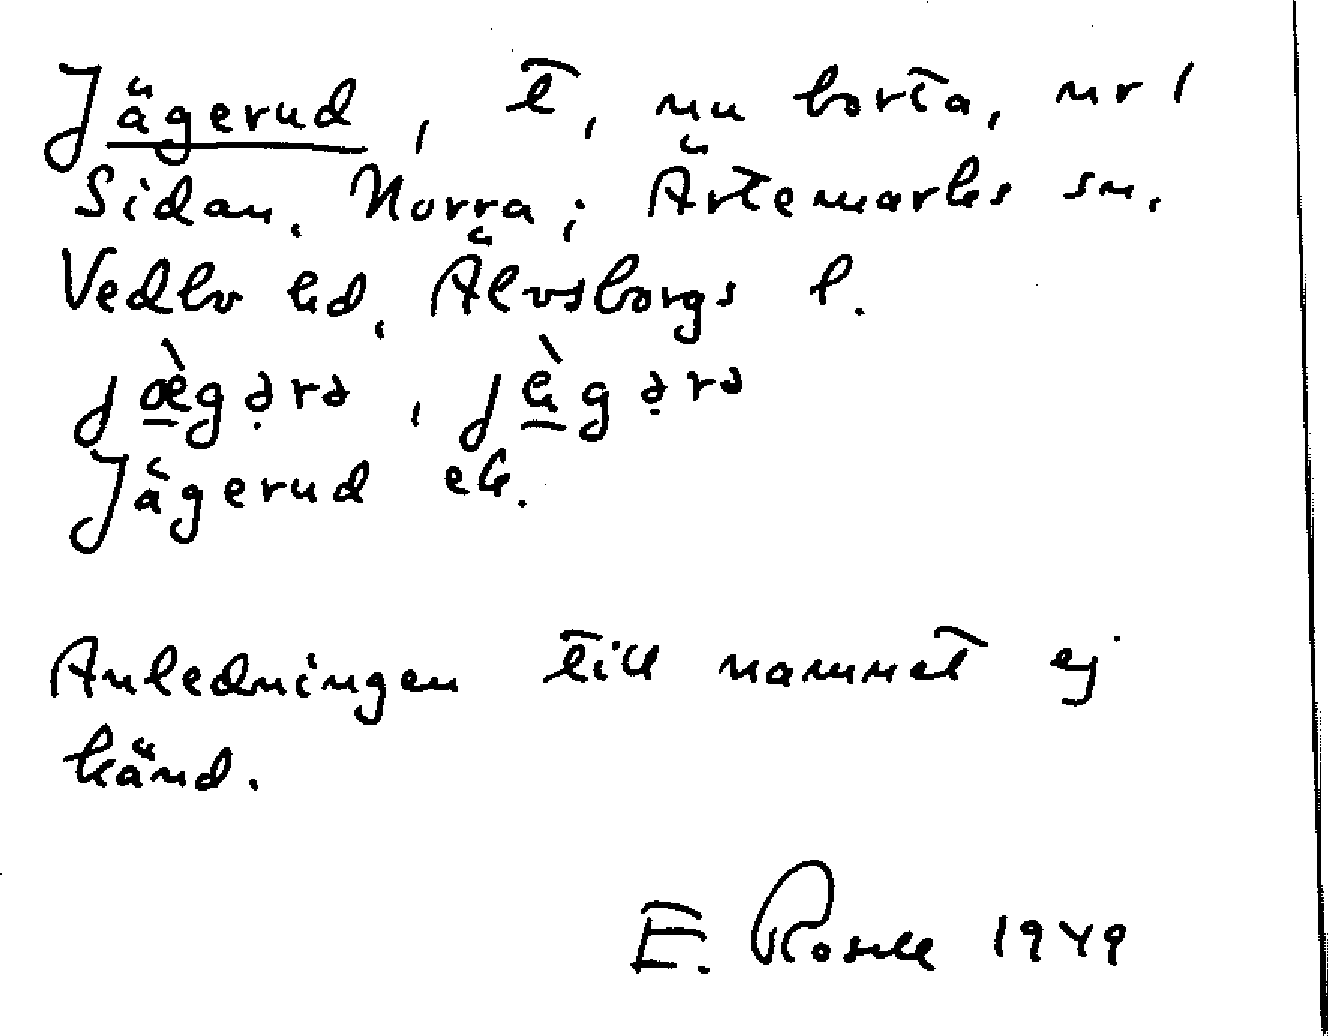 Jägerud, t, nu borta, nr 1
Sidan, Norra; Ärtemarks sn,
Vedbo hd, Älvsborgs l.
jæ̀gərə, jègərə
Jägerud ek.
Anledningen till namnet ej
känd.
E. Rosell 1949